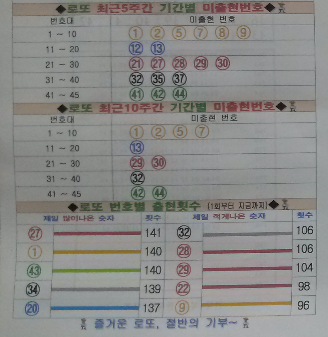 ◆로또 최근5주간 기간별 미출현번호◆
번호대 미출현 번호
1 ~ 10 ① ② ⑤ ⑦ ⑧ ⑨
11 ~ 20 ⑫ ⑬
21 ~ 30 ㉑ ㉗ ㉘ ㉙ ㉚
31 ~ 40 ㉜ ㉟ ㊲
41 ~ 45 ㊶ ㊷ ㊹
◆로또 최근10주간 기간별 미출현번호◆
번호대 미출현 번호
1 ~ 10 ① ② ⑤ ⑦
11 ~ 20 ⑬
21 ~ 30 ㉙ ㉚
31 ~ 40 ㉜
41 ~ 45 ㊷ ㊹
◆로또 번호별 출현횟수 (1회부터 지금까지)◆
제일 많이나온 숫자 횟수 제일 적게나온 숫자 횟수
㉗ 141 ㉜ 106
① 140 ㉘ 106
㊸ 140 ㉙ 104
㉞ 139 ㉒ 98
⑳ 137 ⑨ 96
즐거운 로또, 절반의 기부~